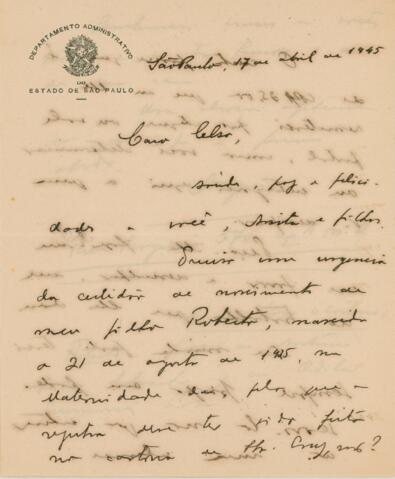 DEPARTAMENTO ADMINISTRATIVO
DO
ESTADO DE SÃO PAULO
São Paulo, 17 de abril de 1945
Caro Celso,
saúde, paz e felici-
dades a você, Anita e filhos.
Preciso com urgencia
da certidão de nascimento de
meu filho Roberto, nascido
a 21 de agosto de 1925, na
Maternidade daí, pelo que o
registro deve ter sido feito
no cartório de Sta. Cruz,